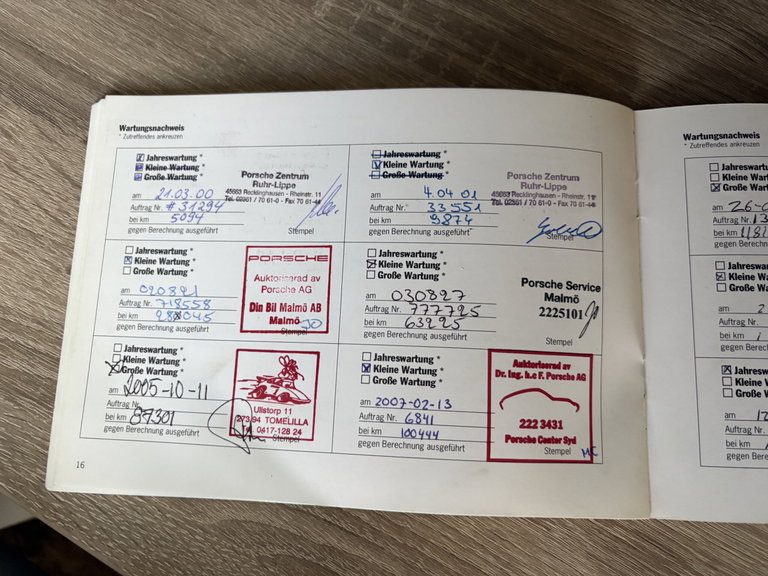 Wartungsnachweis
* Zutreffendes ankreuzen
Jahreswartung *
Kleine Wartung *
Große Wartung *
am 21.03.00
Auftrag Nr. #31294
bei km 5094
gegen Berechnung ausgeführt
Porsche Zentrum
Ruhr-Lippe
45663 Recklinghausen - Rheinstr. 11
Tel. 02361 / 70 61-0 - Fax 70 61-44
Stempel
Jahreswartung *
Kleine Wartung *
Große Wartung *
am 4.04.01
Auftrag Nr. 33551
bei km 9874
gegen Berechnung ausgeführt
Porsche Zentrum
Ruhr-Lippe
45663 Recklinghausen - Rheinstr. 11
Tel. 02361 / 70 61-0 - Fax 70 61-44
Stempel
Jahreswartung *
Kleine Wartung *
Große Wartung *
am
Auftrag Nr. 718558
bei km
gegen Berechnung ausgeführt
PORSCHE
Auktoriserad av
Porsche AG
Din Bil Malmö AB
Malmö
Stempel
Jahreswartung *
Kleine Wartung *
Große Wartung *
am 030827
Auftrag Nr. 777725
bei km 63225
gegen Berechnung ausgeführt
Porsche Service
Malmö
2225101
Stempel
Jahreswartung *
Kleine Wartung *
Große Wartung *
am 2005-10-11
Auftrag Nr.
bei km 87301
gegen Berechnung ausgeführt
Ullstorp 11
273 94 TOMELILLA
Tel. 0417-128 24
Stempel
Jahreswartung *
Kleine Wartung *
Große Wartung *
am 2007-02-13
Auftrag Nr. 6841
bei km 100444
gegen Berechnung ausgeführt
Auktoriserad av
Dr. Ing. h.c F. Porsche AG
222 3431
Porsche Center Syd
Stempel MC
16
Wartungsnachweis
* Zutreffendes ankreuzen
Jahreswart
Kleine Wart
Große Wart
am 26-0
Auftrag Nr. 13
bei km 1182
gegen Berechn
Jahreswar
Kleine War
Große War
am 2
Auftrag Nr.
bei km
gegen Berec
Jahreswa
Kleine Wa
Große Wa
am
Auftrag Nr.
bei km
gegen Bere